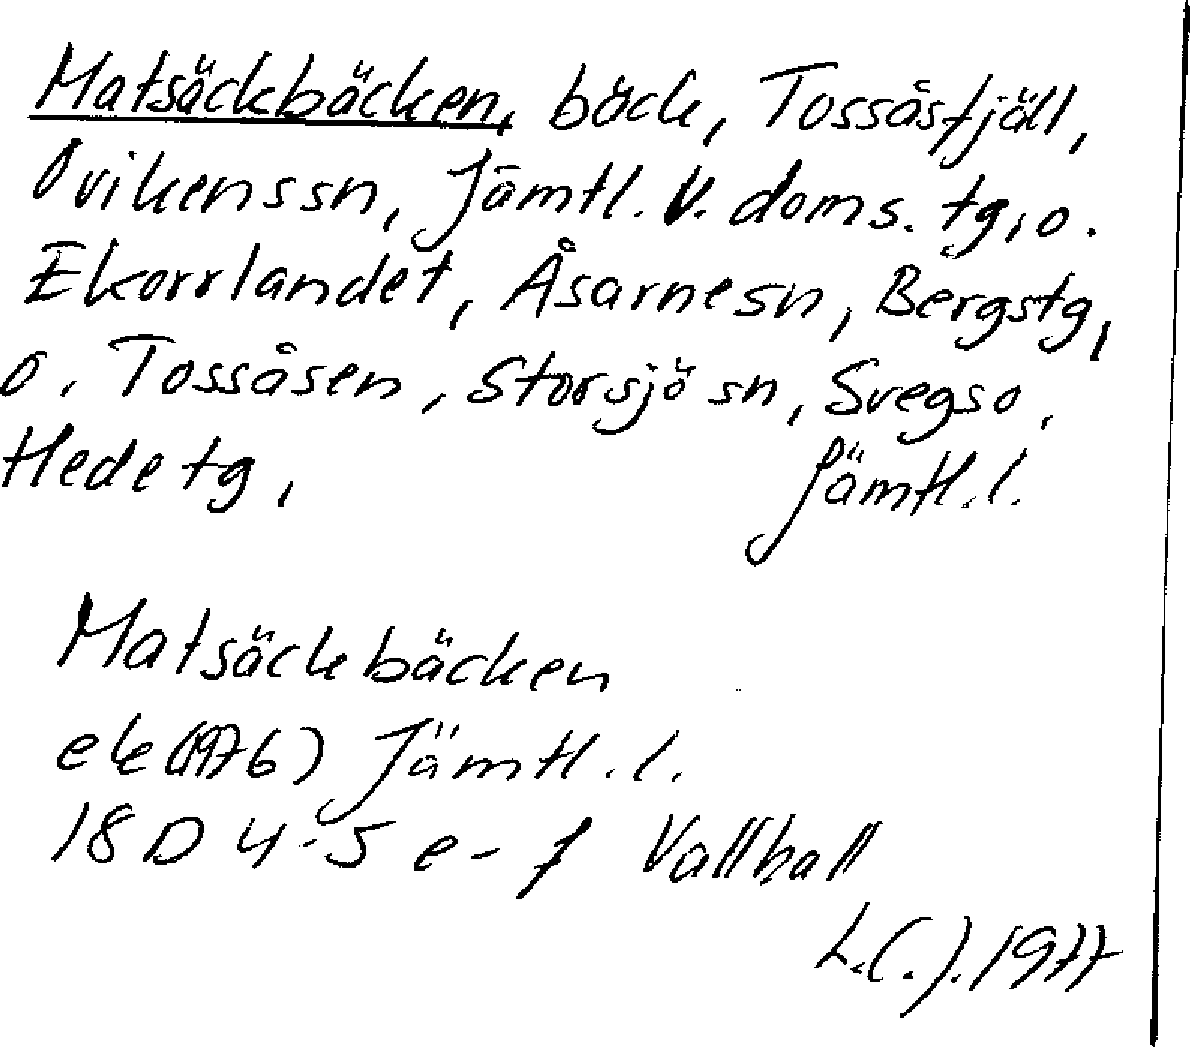 Matsäckbäcken, bäck, Tossåsfjäll,
Ovikens sn, Jämtl. V. doms. tg, o.
Ekorrlandet, Åsarne sn, Bergs tg,
o. Tossåsen, Storsjö sn, Svegs o,
Hede tg, Jämtl. l.
Matsäckbäcken
ek (1976) Jämtl. l.
18 D 4-5 e-f Vallhall
L.C.J. 1977